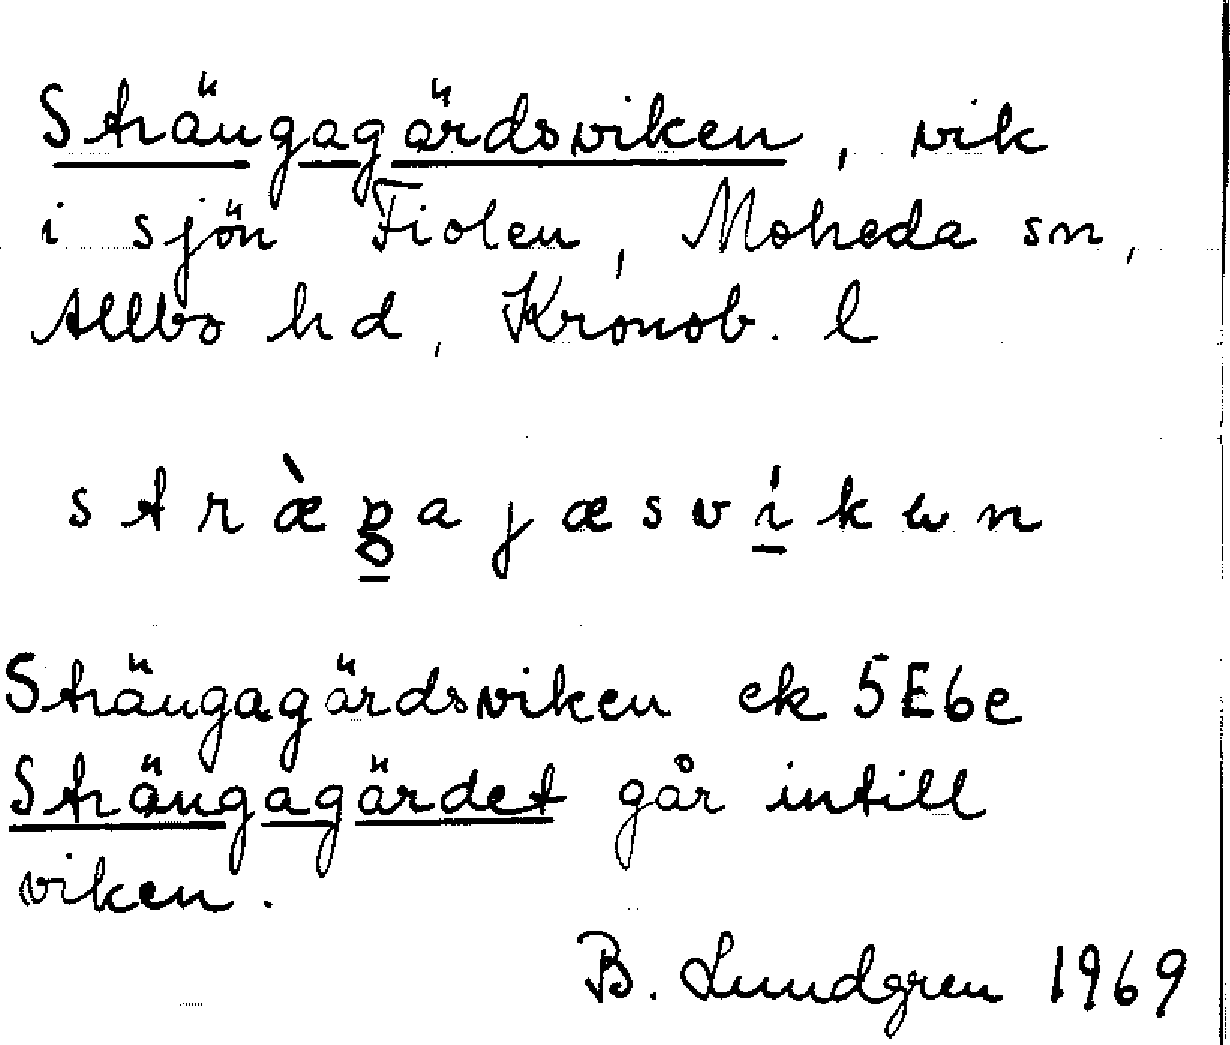 Strängagärdsviken, vik
i sjön Fiolen, Moheda sn,
Allbo hd, Kronob. l
Strängagärdsviken ek 5E6e
Strängagärdet går intill
viken.
B. Lundgren 1969